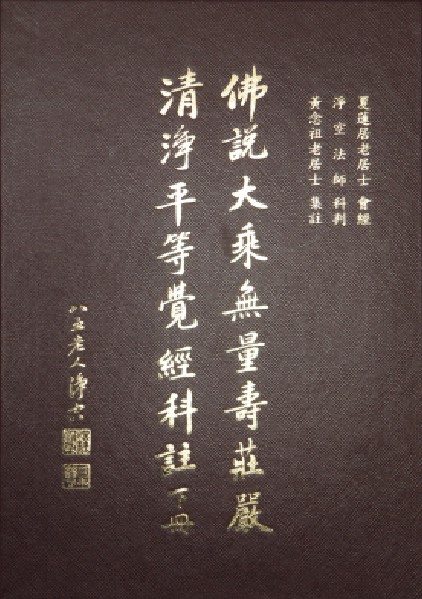 夏蓮居老居士 會經
淨空法師 科判
黃念祖老居士 集註
佛說大乘無量壽莊嚴
清淨平等覺經科註 下冊
八五老人淨空